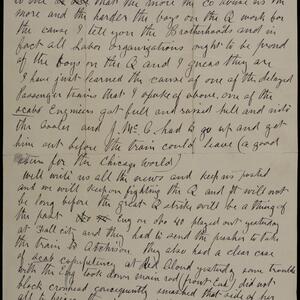 to one that the more they Co abuse us the
more and the harder the boys on the Q work for
the cause I tell you the Brotherhoods and in
fact all Labor organizations ought to be proud
of the boys on the Q and I guess they are
I have just learned the cause of one of the delayed
passenger trains that I spoke of above, one of the
scabs Engineers got full and raised hell and into
the Cooler and J. Mc C. had to go up and get
him out before the train could leave (a good
for the Chicago World)
Will write us all the news and keep us posted
and we will keep on fighting the Q and it will not
be long before the great Q strike will be a thing of
the past Eng on no 40 played out yesterday
at Fall City and they had to send the pusher to take
the train to Atchison They also had a clear case
of scab copulency at Red Cloud yesterday some trouble
with the Eng took down main rod (front End) did not
block crosshead consequently smashed that side of her
all to